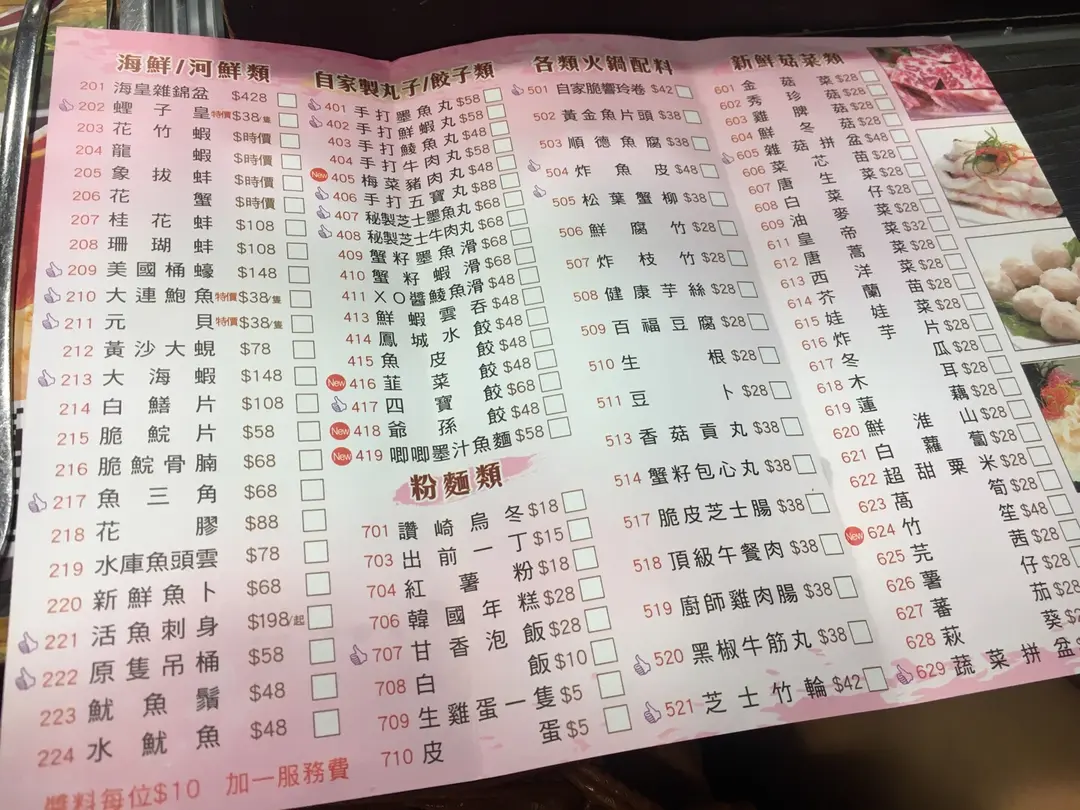 海鮮/河鮮類
201 海皇雜錦盆 $428
202 蟶子皇 特價$38/隻
203 花竹蝦 $時價
204 龍蝦 $時價
205 象拔蚌 $時價
206 花蟹 $時價
207 桂花蚌 $108
208 珊瑚蚌 $108
209 美國桶蠔 $148
210 大連鮑魚 特價$38/隻
211 元貝 特價$38/隻
212 黃沙大蜆 $78
213 大海蝦 $148
214 白鱔片 $108
215 脆鯇片 $58
216 脆鯇骨腩 $68
217 魚三角 $68
218 花膠 $88
219 水庫魚頭雲 $78
220 新鮮魚卜 $68
221 活魚刺身 $198/起
222 原隻吊桶 $58
223 魷魚鬚 $48
224 水魷魚 $48
醬料每位$10 加一服務費
自家製丸子/餃子類
401 手打墨魚丸 $58
402 手打鮮蝦丸 $58
403 手打鯪魚丸 $48
404 手打牛肉丸 $58
New 405 梅菜豬肉丸 $48
406 手打五寶丸 $88
407 秘製芝士墨魚丸 $68
408 秘製芝士牛肉丸 $68
409 蟹籽墨魚滑 $68
410 蟹籽蝦滑 $68
411 XO醬鯪魚滑 $48
413 鮮蝦雲吞 $48
414 鳳城水餃 $48
415 魚皮餃 $48
New 416 韮菜餃 $48
417 四寶餃 $68
New 418 爺孫餃 $48
New 419 唧唧墨汁魚麵 $58
粉麵類
701 讚崎烏冬 $18
703 出前一丁 $15
704 紅薯粉 $18
706 韓國年糕 $28
707 甘香泡飯 $28
708 白飯 $10
709 生雞蛋一隻 $5
710 皮蛋 $5
各類火鍋配料
501 自家脆響玲卷 $42
502 黃金魚片頭 $38
503 順德魚腐 $38
504 炸魚皮 $48
505 松葉蟹柳 $38
506 鮮腐竹 $28
507 炸枝竹 $28
508 健康芋絲 $28
509 百福豆腐 $28
510 生根 $28
511 豆卜 $28
513 香菇貢丸 $38
514 蟹籽包心丸 $38
517 脆皮芝士腸 $38
518 頂級午餐肉 $38
519 廚師雞肉腸 $38
520 黑椒牛筋丸 $38
521 芝士竹輪 $42
新鮮菇菜類
601 金菇菜 $28
602 秀珍菇 $28
603 雞脾菇 $28
604 鮮冬菇 $28
605 雜菇拼盆 $48
606 菜芯苗 $28
607 唐生菜 $28
608 白菜仔 $28
609 油麥菜 $28
611 皇帝菜 $32
612 唐蒿菜 $28
613 西洋菜 $28
614 芥蘭苗 $28
615 娃娃菜 $28
616 炸芋片 $28
617 冬瓜 $28
618 木耳 $28
619 蓮藕 $28
620 鮮淮山 $28
621 白蘿蔔 $28
622 超甜粟米 $28
623 萬筍 $28
New 624 竹笙 $48
625 芫茜 $28
626 薯仔 $28
627 蕃茄 $28
628 萩葵
629 蔬菜拼盆